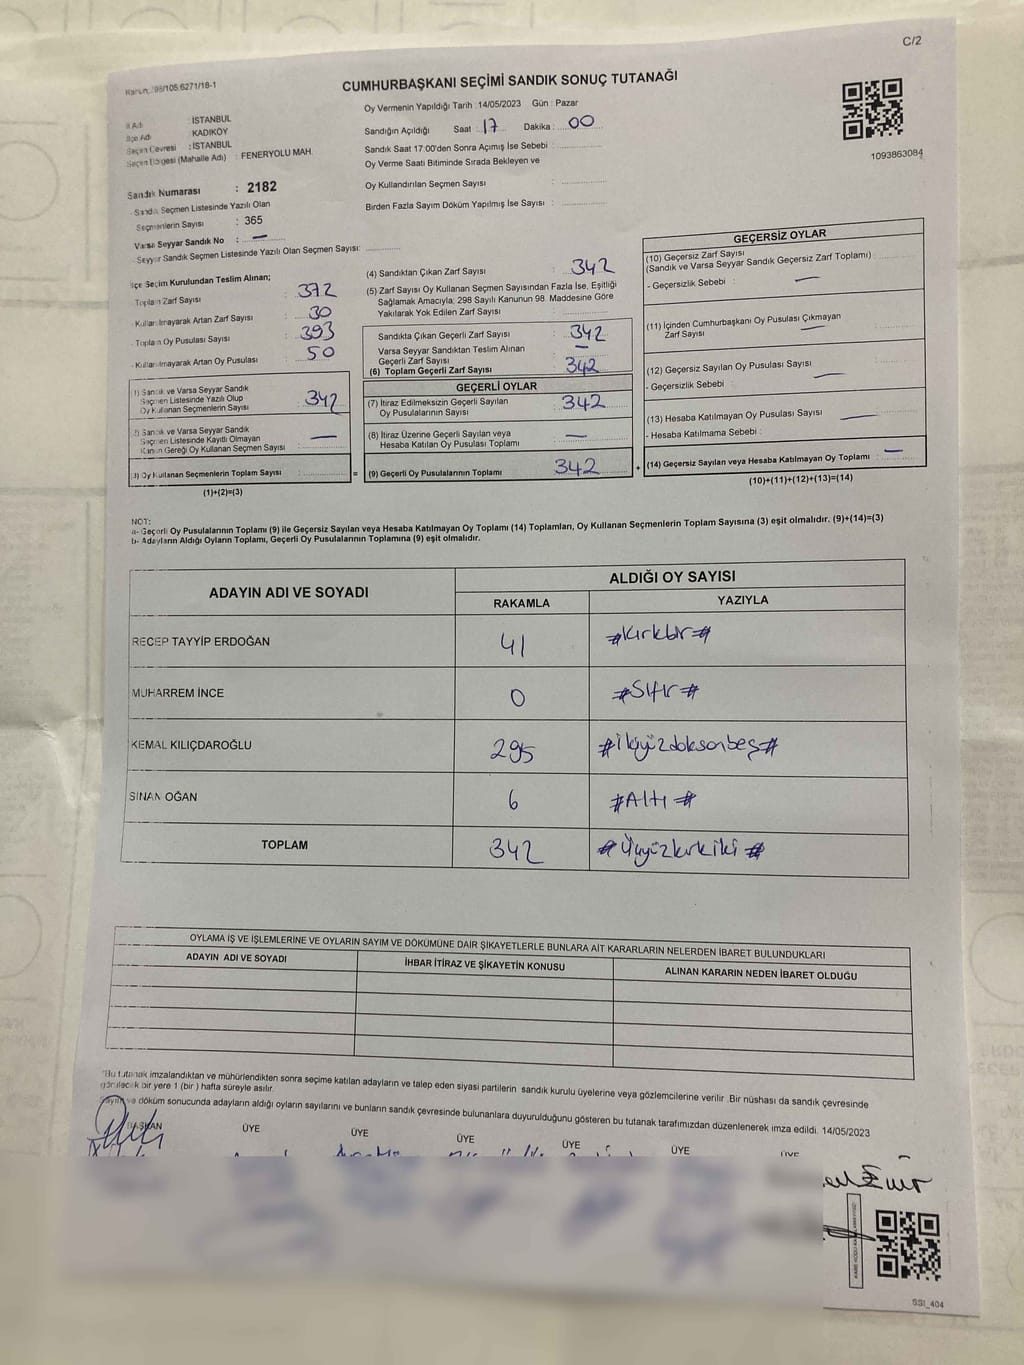 C/2
Kanun: 298/105:6271/18-1
CUMHURBAŞKANI SEÇİMİ SANDIK SONUÇ TUTANAĞI
Oy Vermenin Yapıldığı Tarih : 14/05/2023 Gün : Pazar
İl Adı : İSTANBUL
İlçe Adı : KADIKÖY
Seçim Çevresi : İSTANBUL
Seçim Bölgesi (Mahalle Adı) : FENERYOLU MAH.
Sandığın Açıldığı Saat : 17 Dakika : 00
Sandık Saat 17:00'den Sonra Açımış İse Sebebi :
Oy Verme Saati Bitiminde Sırada Bekleyen ve
Oy Kullandırılan Seçmen Sayısı :
Birden Fazla Sayım Döküm Yapılmış İse Sayısı :
1093863084
Sandık Numarası : 2182
Sandık Seçmen Listesinde Yazılı Olan
Seçmenlerin Sayısı : 365
Varsa Seyyar Sandık No : —
Seyyar Sandık Seçmen Listesinde Yazılı Olan Seçmen Sayısı:
İlçe Seçim Kurulundan Teslim Alınan;
Toplam Zarf Sayısı 372
Kullanılmayarak Artan Zarf Sayısı 30
Toplam Oy Pusulası Sayısı 393
Kullanılmayarak Artan Oy Pusulası 50
1) Sandık ve Varsa Seyyar Sandık
Seçmen Listesinde Yazılı Olup
Oy Kullanan Seçmenlerin Sayısı 342
2) Sandık ve Varsa Seyyar Sandık
Seçmen Listesinde Kayıtlı Olmayan
Kanun Gereği Oy Kullanan Seçmen Sayısı : —
3) Oy Kullanan Seçmenlerin Toplam Sayısı :
(1)+(2)=(3)
(4) Sandıktan Çıkan Zarf Sayısı 342
(5) Zarf Sayısı Oy Kullanan Seçmen Sayısından Fazla İse, Eşitliği
Sağlamak Amacıyla; 298 Sayılı Kanunun 98. Maddesine Göre
Yakılarak Yok Edilen Zarf Sayısı :
Sandıkta Çıkan Geçerli Zarf Sayısı : 342
Varsa Seyyar Sandıktan Teslim Alınan
Geçerli Zarf Sayısı : —
(6) Toplam Geçerli Zarf Sayısı : 342
GEÇERLİ OYLAR
(7) İtiraz Edilmeksizin Geçerli Sayılan
Oy Pusulalarının Sayısı : 342
(8) İtiraz Üzerine Geçerli Sayılan veya
Hesaba Katılan Oy Pusulası Toplamı : —
= (9) Geçerli Oy Pusulalarının Toplamı : 342 +
GEÇERSİZ OYLAR
(10) Geçersiz Zarf Sayısı
(Sandık ve Varsa Seyyar Sandık Geçersiz Zarf Toplamı) :
- Geçersizlik Sebebi : —
(11) İçinden Cumhurbaşkanı Oy Pusulası Çıkmayan
Zarf Sayısı —
(12) Geçersiz Sayılan Oy Pusulası Sayısı :
- Geçersizlik Sebebi : —
(13) Hesaba Katılmayan Oy Pusulası Sayısı : —
- Hesaba Katılmama Sebebi :
(14) Geçersiz Sayılan veya Hesaba Katılmayan Oy Toplamı : —
(10)+(11)+(12)+(13)=(14)
NOT:
a- Geçerli Oy Pusulalarının Toplamı (9) ile Geçersiz Sayılan veya Hesaba Katılmayan Oy Toplamı (14) Toplamları, Oy Kullanan Seçmenlerin Toplam Sayısına (3) eşit olmalıdır. (9)+(14)=(3)
b- Adayların Aldığı Oyların Toplamı, Geçerli Oy Pusulalarının Toplamına (9) eşit olmalıdır.
ADAYIN ADI VE SOYADI ALDIĞI OY SAYISI
RAKAMLA YAZIYLA
RECEP TAYYİP ERDOĞAN 41 #Kırkbir#
MUHARREM İNCE 0 #Sıfır#
KEMAL KILIÇDAROĞLU 295 #İkiyüzdoksanbeş#
SİNAN OĞAN 6 #Altı#
TOPLAM 342 #Üçyüzkırkiki#
OYLAMA İŞ VE İŞLEMLERİNE VE OYLARIN SAYIM VE DÖKÜMÜNE DAİR ŞİKAYETLERLE BUNLARA AİT KARARLARIN NELERDEN İBARET BULUNDUKLARI
ADAYIN ADI VE SOYADI İHBAR İTİRAZ VE ŞİKAYETİN KONUSU ALINAN KARARIN NEDEN İBARET OLDUĞU
*Bu tutanak imzalandıktan ve mühürlendikten sonra seçime katılan adayların ve talep eden siyasi partilerin sandık kurulu üyelerine veya gözlemcilerine verilir. Bir nüshası da sandık çevresinde
görülecek bir yere 1 (bir) hafta süreyle asılır.
Sayım ve döküm sonucunda adayların aldığı oyların sayılarını ve bunların sandık çevresinde bulunanlara duyurulduğunu gösteren bu tutanak tarafımızdan düzenlenerek imza edildi. 14/05/2023
BAŞKAN ÜYE ÜYE ÜYE ÜYE ÜYE ÜYE
SSI_404